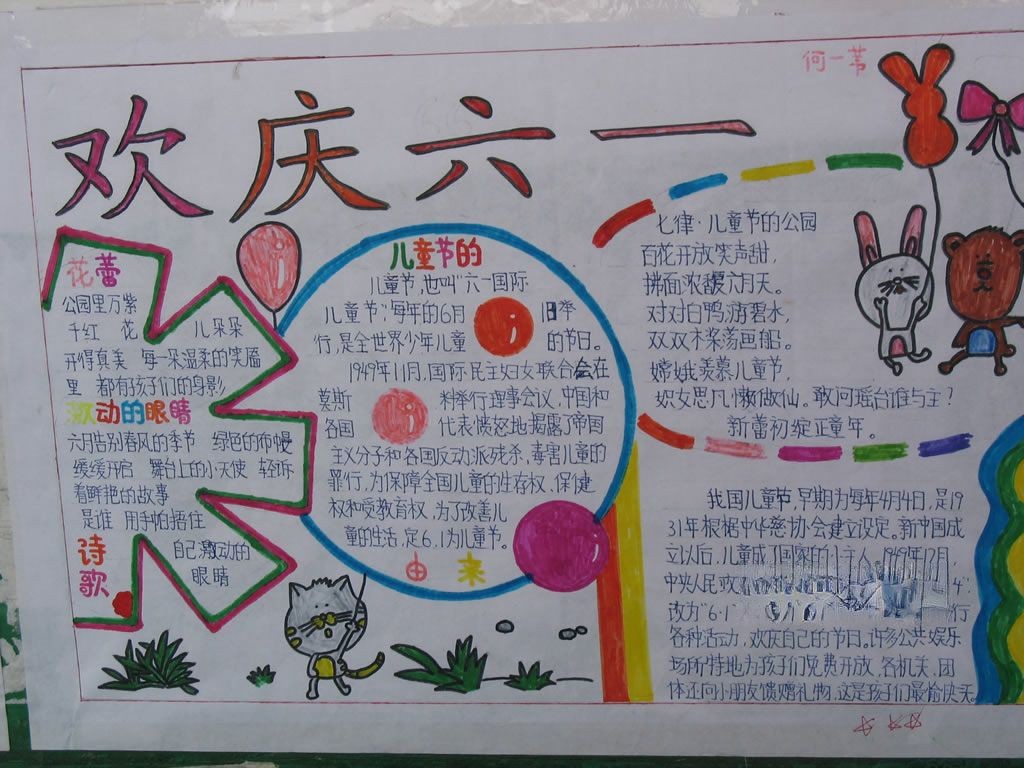 何一苇
欢庆六一
花蕾
公园里万紫
千红 花 儿朵朵
开得真美 每一朵温柔的笑靥
里 都有孩子们的身影
激动的眼睛
六月告别春风的季节 绿色的布幔
缓缓开启 舞台上的小天使 轻诉
着鲜艳的故事
是谁 用手帕捂住
自己激动的
眼睛
诗
歌
儿童节的
儿童节,也叫"六一国际
儿童节",每年的6月 1日举
行,是全世界少年儿童 的节日。
1949年11月,国际民主妇女联合会在
莫斯 科举行理事会议,中国和
各国 代表愤怒地揭露了帝国
主义分子和各国反动派残杀、毒害儿童的
罪行,为保障全国儿童的生存权、保健
权和受教育权,为了改善儿
童的生活,定6.1为儿童节。
由 来
七律·儿童节的公园
百花开放笑声甜,
拂面浓馥六月天。
对对白鸭游碧水,
双双木桨荡画船。
嫦娥羡慕儿童节,
织女思凡懒做仙。敢问瑶台谁与主?
新蕾初绽正童年。
我国儿童节,早期为每年4月4日,是19
31年根据中华慈协会建立设定。新中国成
立以后,儿童成了国家的小主人,1949年12月,
中央人民政 4"
改为"6·1" 行
各种活动,欢庆自己的节日。许多公共娱乐
场所特地为孩子们免费开放,各机关、团
体还向小朋友馈赠礼物,这是孩子们最愉快天。